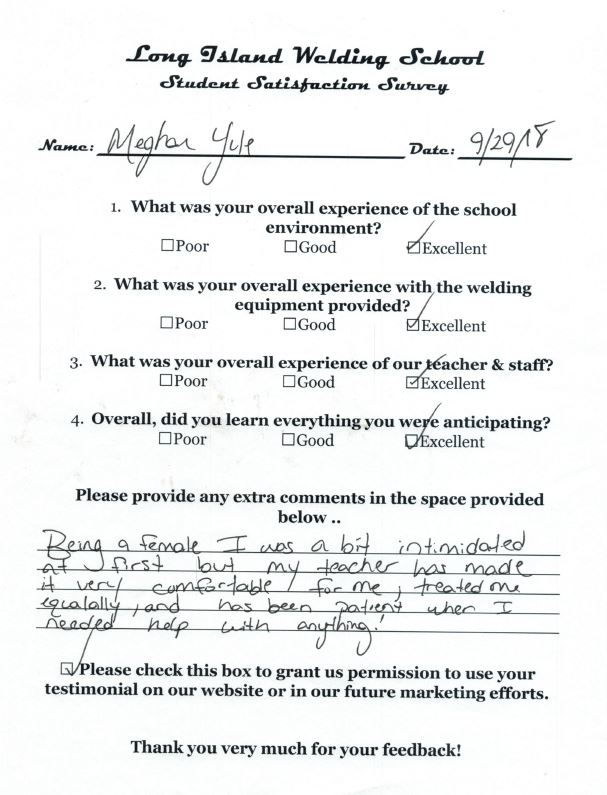 Long Island Welding School
Student Satisfaction Survey
Name: Meghan Yule Date: 9/29/18
1. What was your overall experience of the school
environment?
☐Poor ☐Good ☑Excellent
2. What was your overall experience with the welding
equipment provided?
☐Poor ☐Good ☑Excellent
3. What was your overall experience of our teacher & staff?
☐Poor ☐Good ☑Excellent
4. Overall, did you learn everything you were anticipating?
☐Poor ☐Good ☑Excellent
Please provide any extra comments in the space provided
below ..
Being a female I was a bit intimidated
at first but my teacher has made
it very comfortable for me, treated me
equalally, and has been patient when I
needed help with anything!
☑Please check this box to grant us permission to use your
testimonial on our website or in our future marketing efforts.
Thank you very much for your feedback!